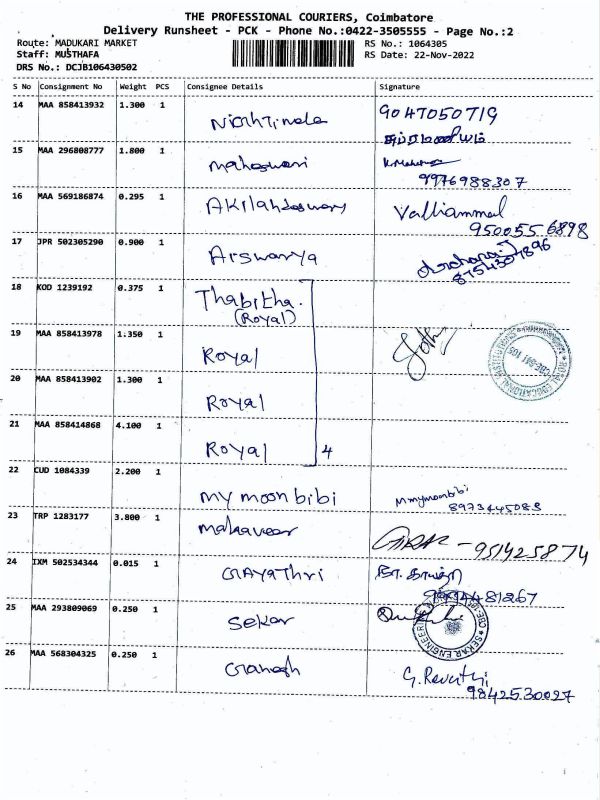 THE PROFESSIONAL COURIERS, Coimbatore
Delivery Runsheet - PCK - Phone No.:0422-3505555 - Page No.:2
Route: MADUKARI MARKET
Staff: MUSTHAFA
DRS No.: DCJB106430502
RS No.: 1064305
RS Date: 22-Nov-2022
S No Consignment No Weight PCS Consignee Details Signature
14 MAA 858413932 1.300 1 9047050719
15 MAA 296808777 1.800 1 Maheswari
9976988307
16 MAA 569186874 0.295 1 Valliammal
9500556898
17 JPR 502305290 0.900 1 Aiswarya
8754307896
18 KOD 1239192 0.375 1 Thabitha.
(Royal)
19 MAA 858413978 1.350 1 Royal
20 MAA 858413902 1.300 1 Royal
21 MAA 858414868 4.100 1 Royal 4
22 CUD 1084339 2.200 1 my moon bibi mmymoonbibi
8973445083
23 TRP 1283177 3.800 1 mahaveer - 9514258774
24 IXM 502534344 0.015 1 GAYAThri
9994481267
25 MAA 293809069 0.250 1 Sekar
SEKAR ENGINEERI
26 MAA 568304325 0.250 1 Ganesh G. Revathi
9842530027